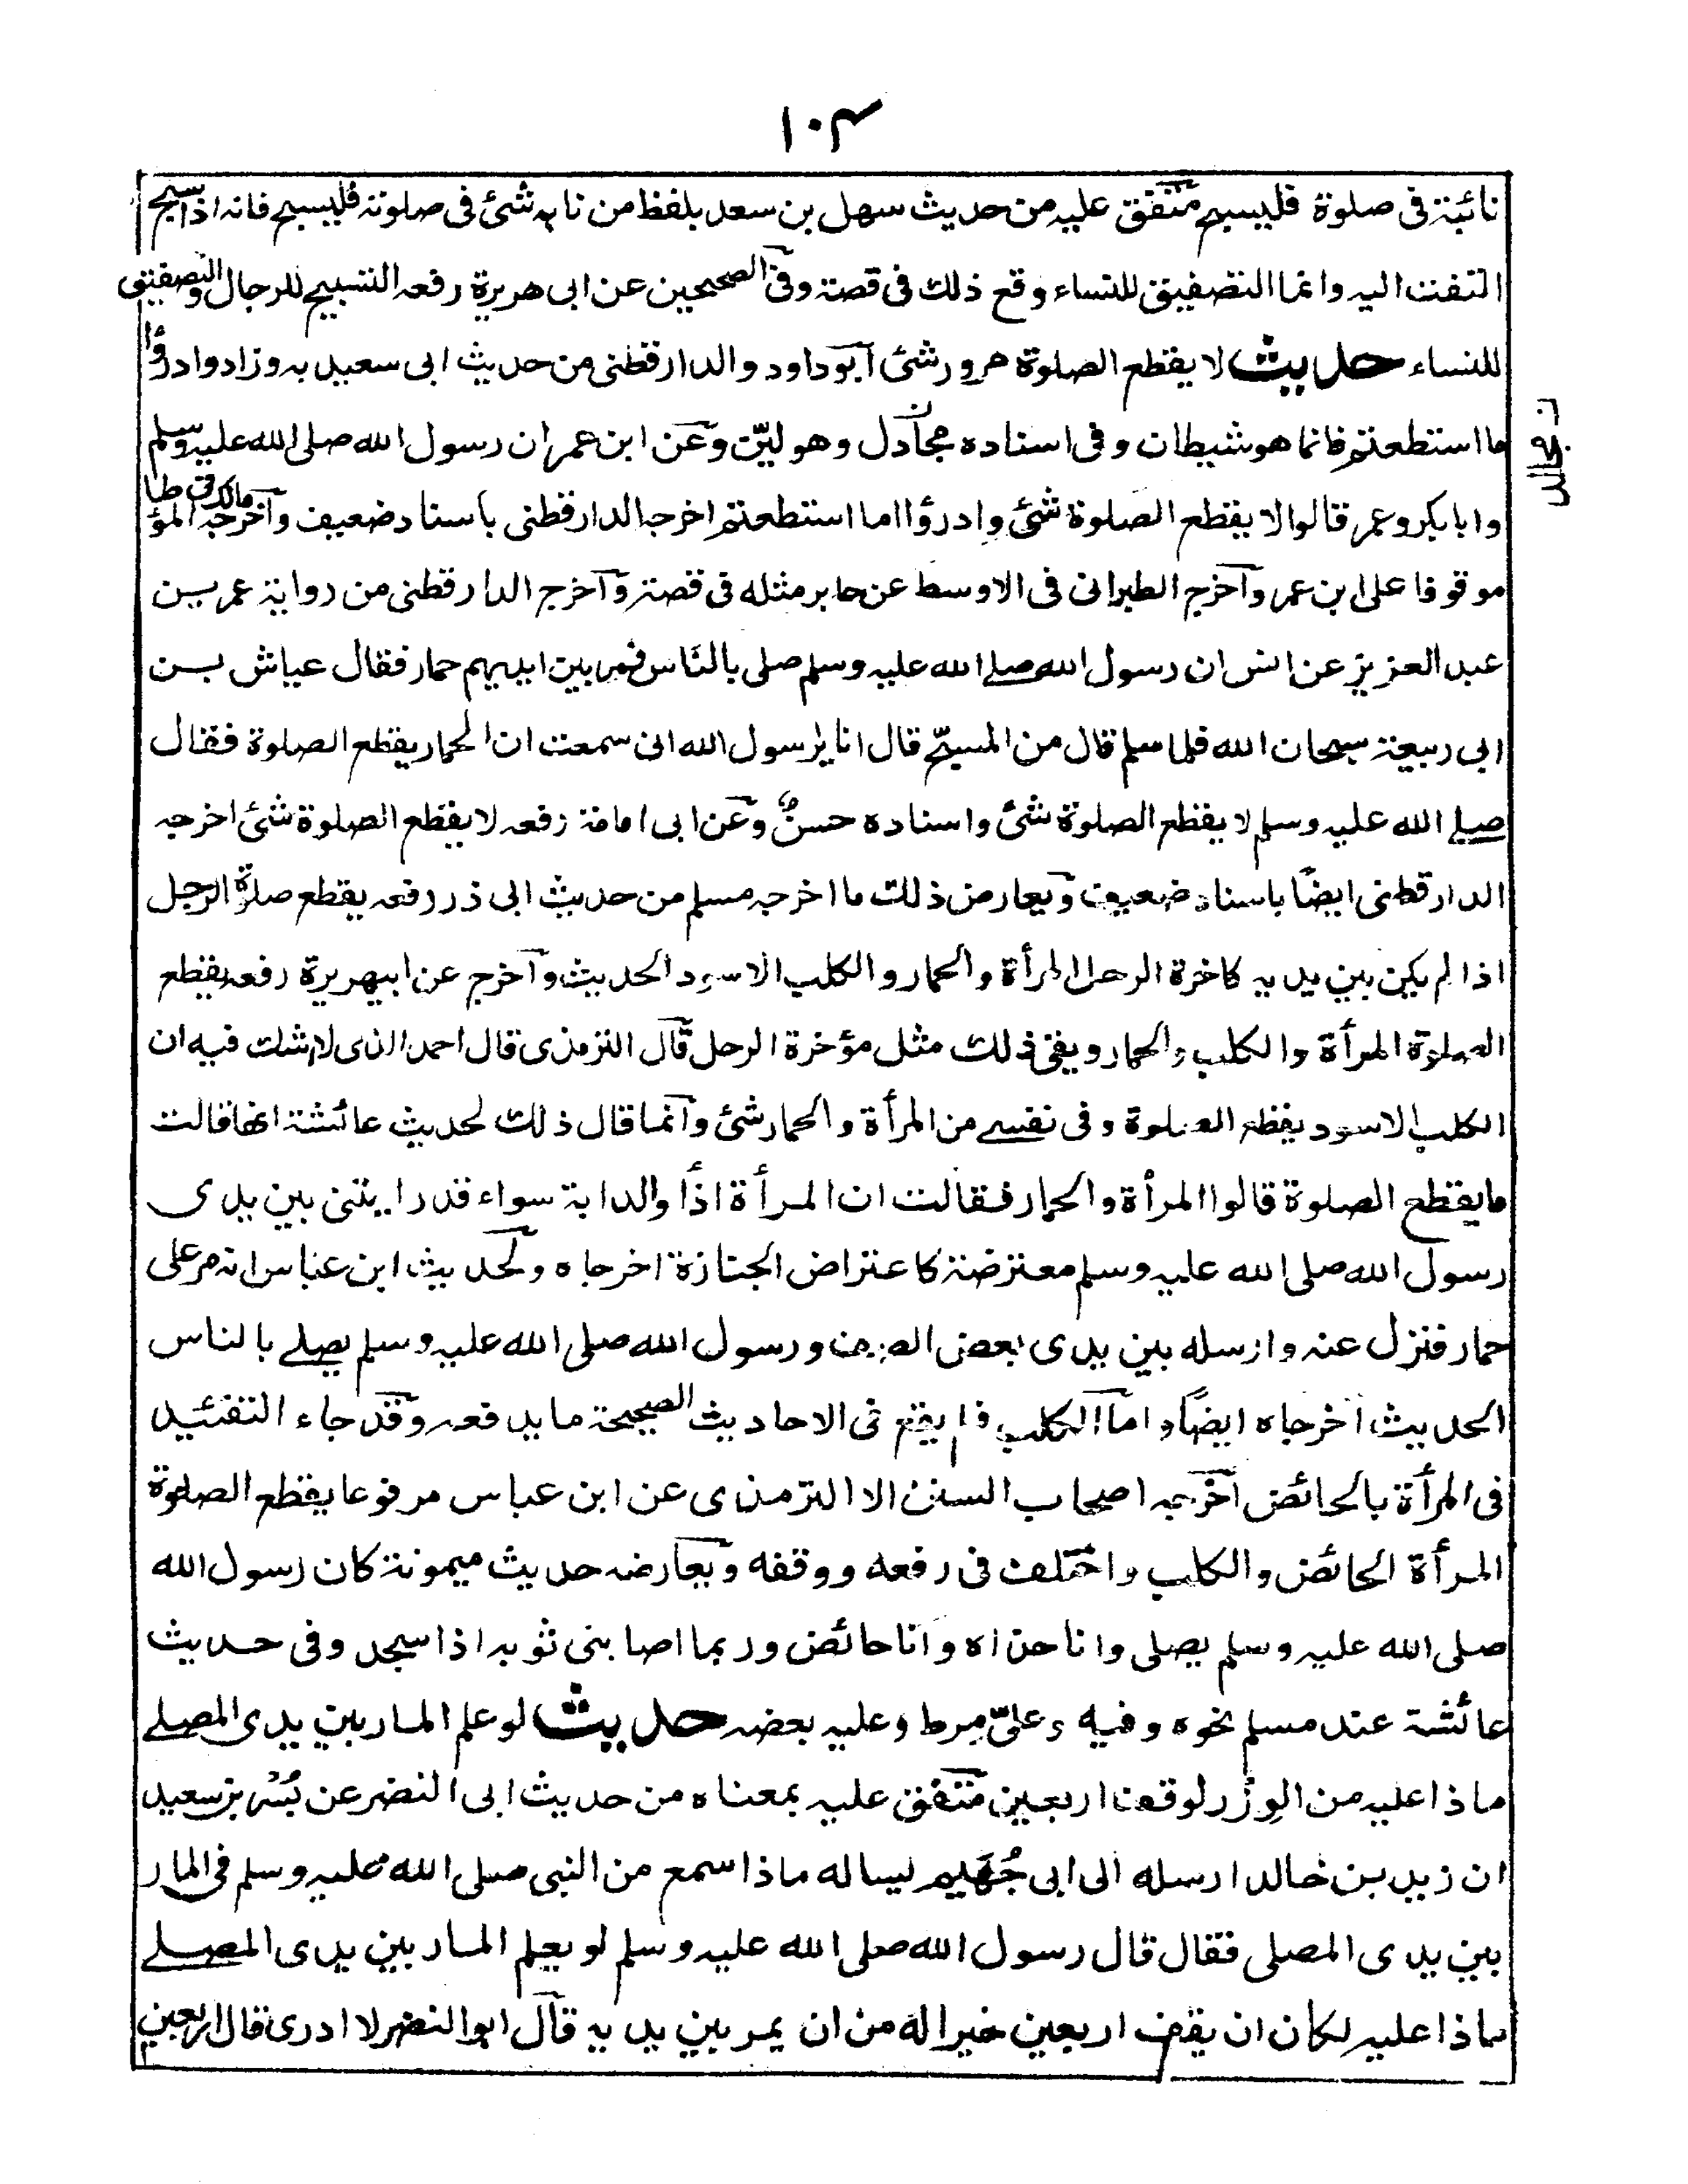 ۱۰۴
نائبة فى صلوة فليسبح متفق عليه من حديث سهل بن سعد بلفظ من نابه شئ فى صلوته فليسبح فانه اذا سبح
التفت اليه وانما التصفيق للنساء وقع ذلك فى قصة وفى الصحيحين عن ابى هريرة رفعه التسبيح للرجال والتصفيق
للنساء حديث لا يقطع الصلوة مرور شئ ابو داود والدارقطنى من حديث ابى سعيد به وزاد وادرؤا
ما استطعتم فانما هو شيطان وفى اسناده مجادل وهو لين وعن ابن عمر ان رسول الله صلى الله عليه وسلم
ن مجالد
وابا بكر وعمر قالوا لا يقطع الصلوة شئ وادرؤا ما استطعتم اخرجه الدارقطنى باسناد ضعيف واخرجه مالك فى المؤطا
موقوفا على ابن عمر واخرج الطبرانى فى الاوسط عن جابر مثله فى قصة واخرج الدارقطنى من رواية عمر بن
عبد العزيز عن انس ان رسول الله صلے الله عليه وسلم صلى بالناس فمر بين ايديهم حمار فقال عياش بن
ابى ربيعة سبحان الله فلما سلم قال من المسبح قال انا يا رسول الله انى سمعت ان الحمار يقطع الصلوة فقال
صلے الله عليه وسلم لا يقطع الصلوة شئ واسناده حسن وعن ابى امامة رفعه لا يقطع الصلوة شئ اخرجه
الدارقطنى ايضًا باسناد ضعيف ويعارض ذلك ما اخرجه مسلم من حديث ابى ذر رفعه يقطع صلوة الرجل
اذا لم يكن بين يديه كاخرة الرحل المرأة والحمار والكلب الاسود الحديث واخرج عن ابيهريرة رفعه يقطع
الصلوة المرأة والكلب والحمار ويقى ذلك مثل مؤخرة الرحل قال الترمذى قال احمد الذى لا شك فيه ان
الكلب الاسود يقطع الصلوة وفى نفسے من المرأة والحمار شئ وانما قال ذلك لحديث عائشة انها قالت
ما يقطع الصلوة قالوا المرأة والحمار فقالت ان المرأة اذًا والدابة سواء قد رايتنى بين يدى
رسول الله صلى الله عليه وسلم معترضة كاعتراض الجنازة اخرجاه ولحديث ابن عباس انه مر على
حمار فنزل عنه وارسله بين يدى بعض الصف ورسول الله صلى الله عليه وسلم يصلے بالناس
الحديث اخرجاه ايضًا واما الكلب فلم يقع فى الاحاديث الصحيحة ما يدفعه وقد جاء التقئيد
فى المرأة بالحائض اخرجه اصحاب السنن الا الترمذى عن ابن عباس مرفوعا يقطع الصلوة
المرأة الحائض والكلب واختلف فى رفعه ووقفه ويعارضه حديث ميمونة كان رسول الله
صلى الله عليه وسلم يصلى وانا حذاه وانا حائض وربما اصابنى ثوبه اذا سجد وفى حديث
عائشة عند مسلم نحوه وفيه وعلىّ مرط وعليه بعضه حديث لو علم المار بين يدى المصلے
ماذا عليه من الوزر لوقف اربعين متفق عليه بمعناه من حديث ابى النضر عن بسر بن سعيد
ان زيد بن خالد ارسله الى ابى جهيم ليساله ماذا سمع من النبى صلى الله عليه وسلم فى المار
بين يدى المصلى فقال قال رسول الله صلى الله عليه وسلم لو يعلم المار بين يدى المصلے
ماذا عليه لكان ان يقف اربعين خيرا له من ان يمر بين يديه قال ابو النضر لا ادرى قال اربعين